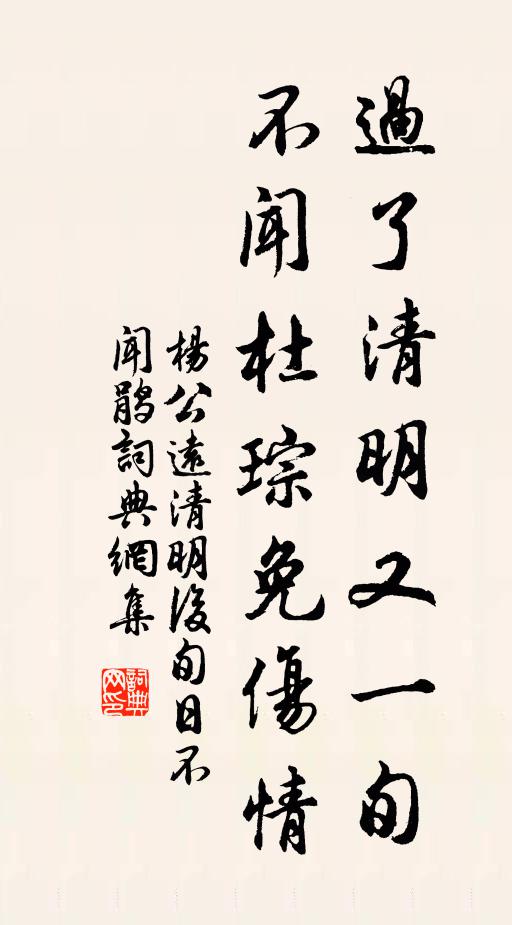 過了清明又一旬
不聞杜琮免傷情
楊公遠清明後旬日不
聞鵑詞典網集
詞典網印